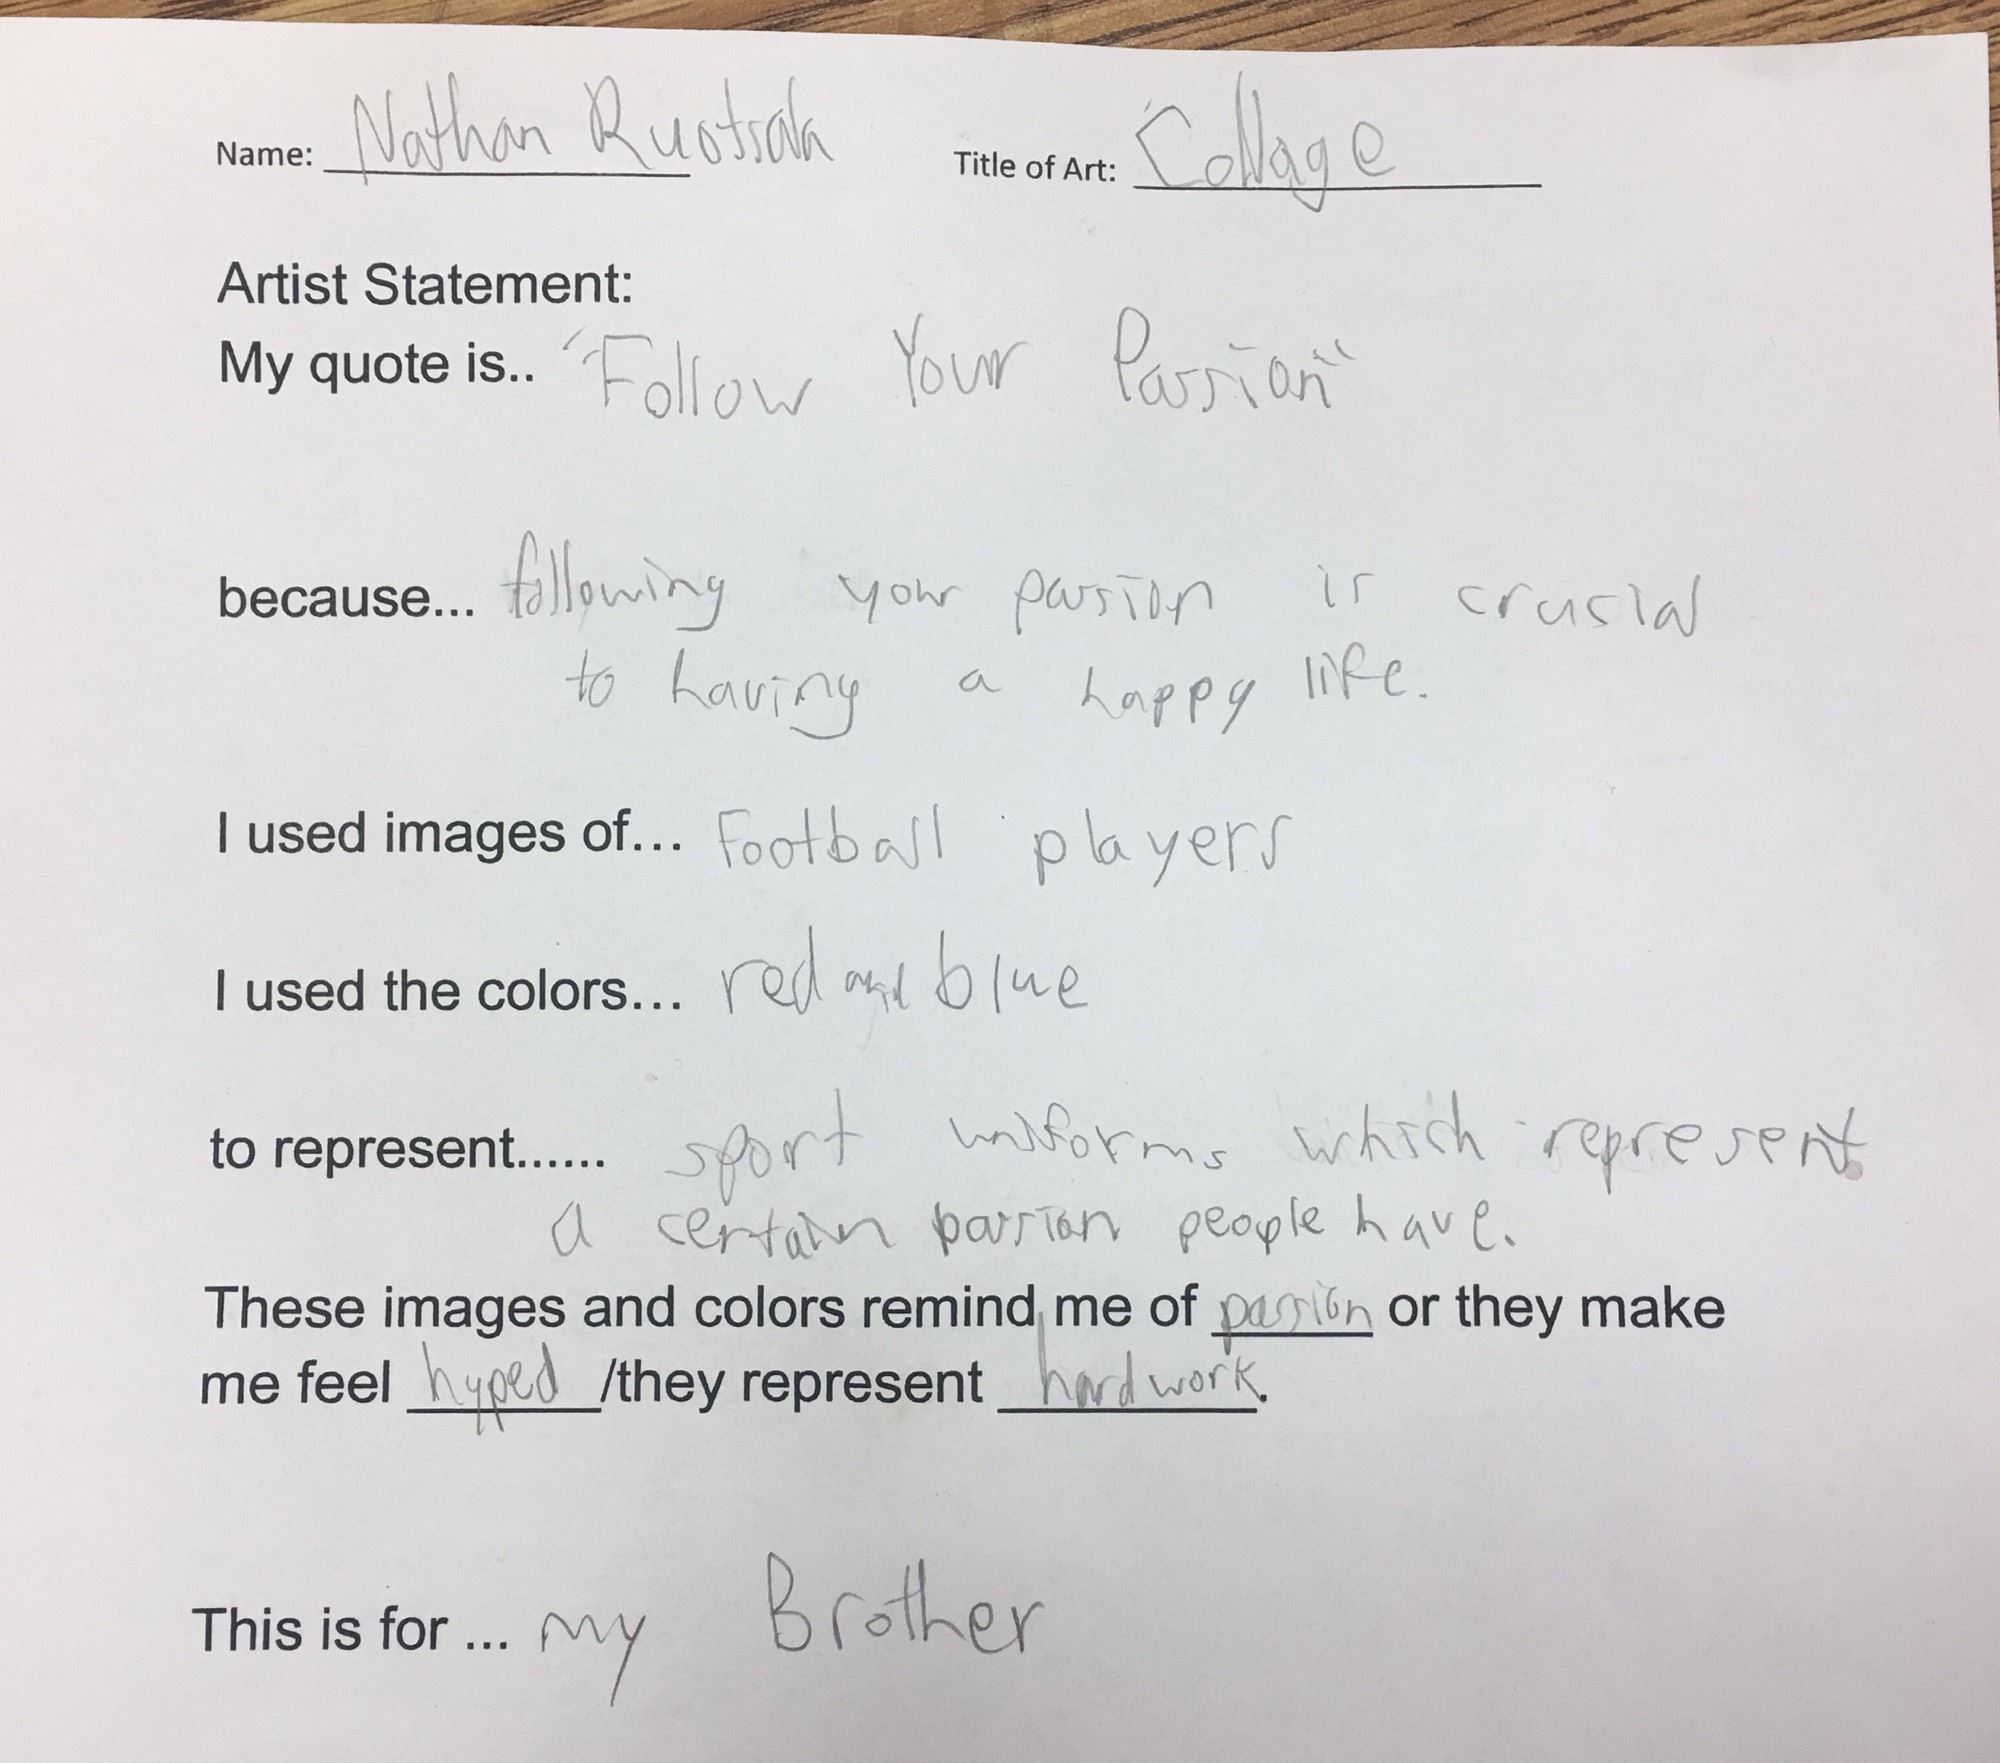 Name: Nathan Ruotsala Title of Art: Collage
Artist Statement:
My quote is.. "Follow Your Passion"
because... following your passion is crusial
to having a happy life.
I used images of... Football players
I used the colors... red and blue
to represent...... sport uniforms which represent
a certain passion people have.
These images and colors remind me of passion or they make
me feel hyped /they represent hard work.
This is for ... my Brother